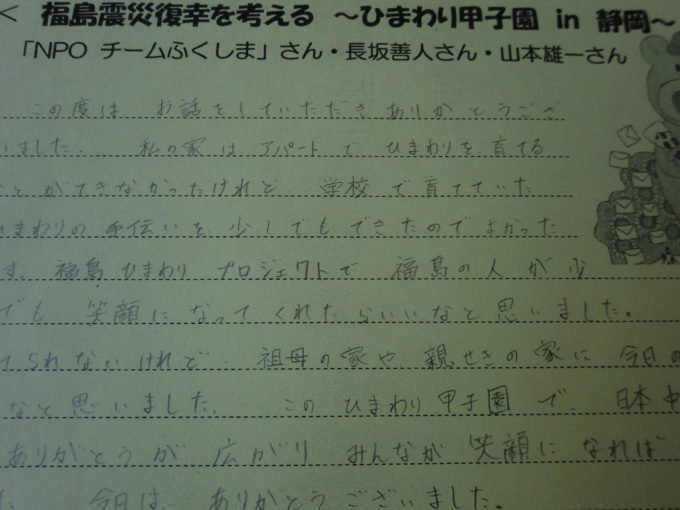 < 福島震災復幸を考える ～ひまわり甲子園 in 静岡～
「NPO チームふくしま」さん・長坂善人さん・山本雄一さん
この度は お話をしていただき ありがとうござ
いました。 私の家は アパートで ひまわりを 育てる
ことができなかったけれど、 学校で育てていた
ひまわりの 手伝いを 少しでもできたのでよかった
す。 福島ひまわり プロジェクトで 福島の人が少
でも 笑顔に なって くれたらいいなと思いました。
てられないけれど、 祖母の家や 親せきの家に 今日の
なと思いました。 この ひまわり甲子園で、 日本中
ありがとうが 広がり みんなが 笑顔に なれば
た。 今日は ありがとうございました。